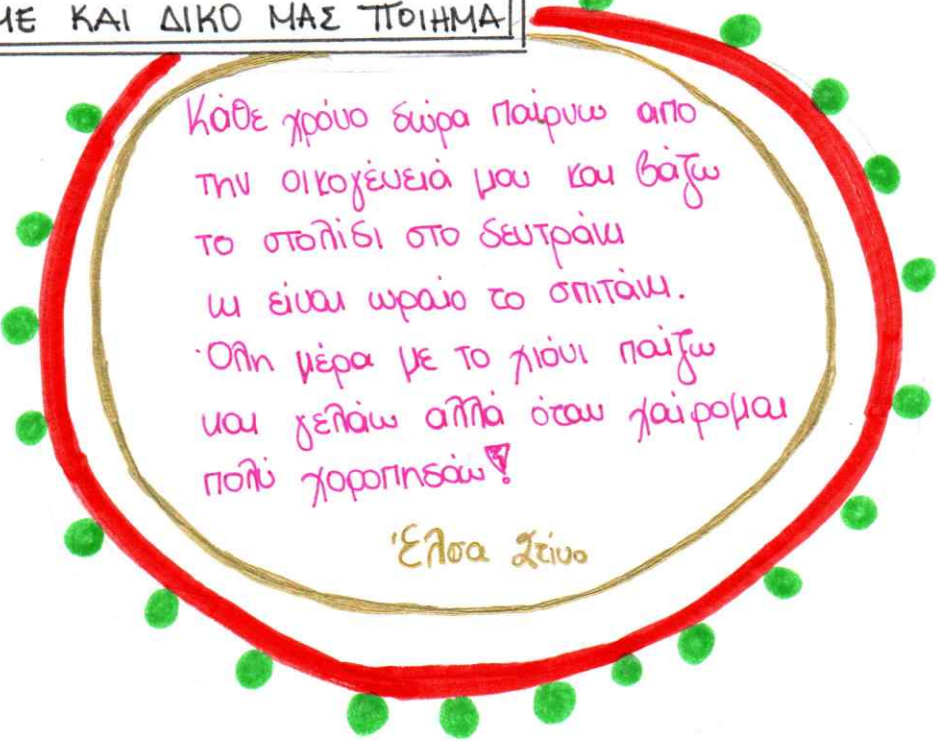 ΜΕ ΚΑΙ ΔΙΚΟ ΜΑΣ ΠΟΙΗΜΑ
Κάθε χρόνο δώρα παίρνω απο
την οικογένειά μου και βάζω
το στολίδι στο δεντράκι
κι είναι ωραίο το σπιτάκι.
Όλη μέρα με το χιόνι παίζω
και γελάω αλλά όταν χαίρομαι
πολύ χοροπηδάω!
Έλσα Στίνο